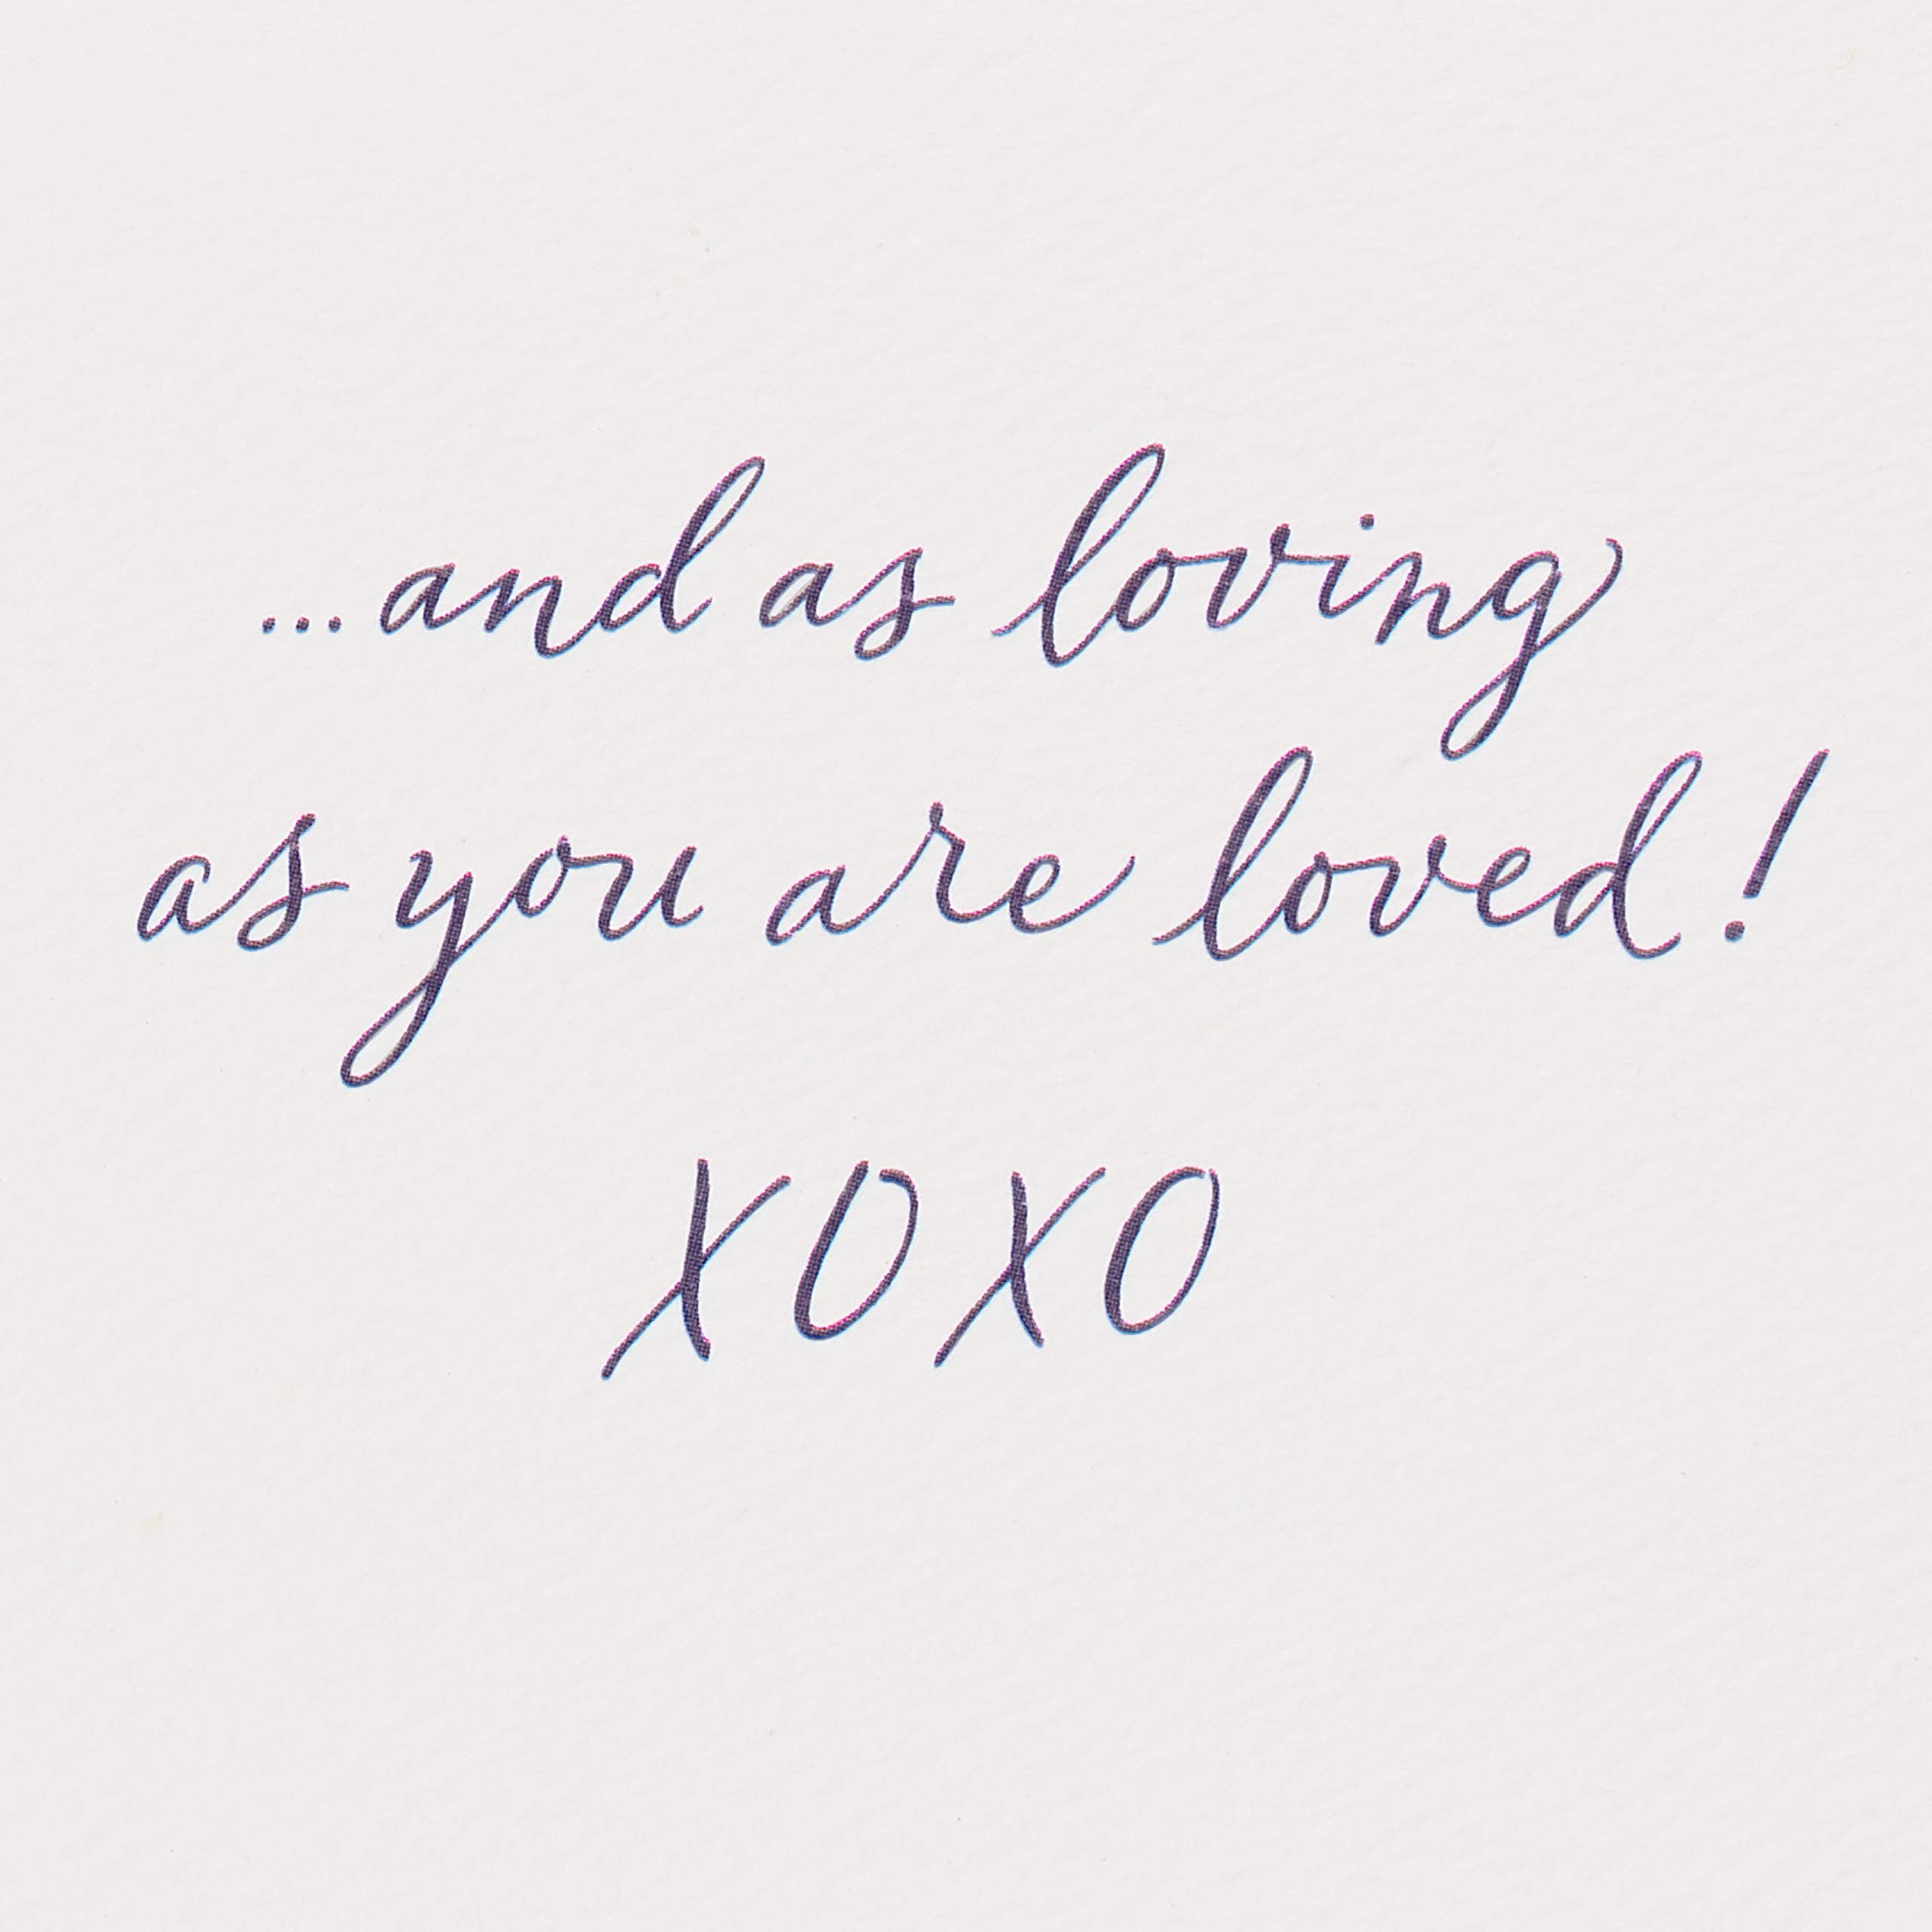 ...and as loving
as you are loved!
XOXO